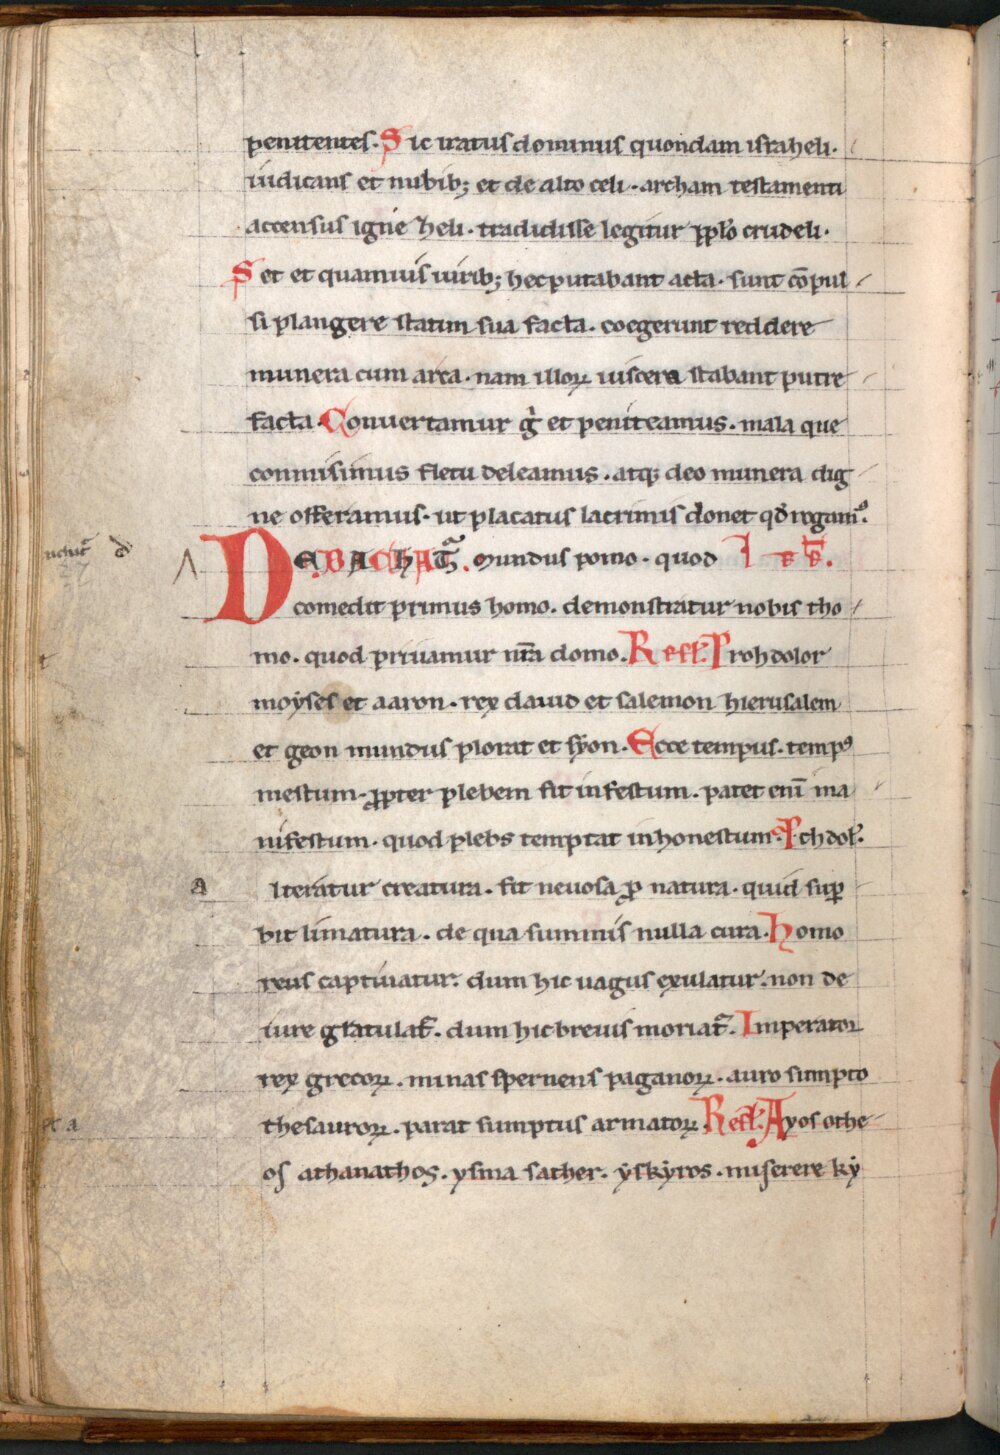 penitentes. Sic iratus dominus quondam israheli.
iudicans et nubib; et de alto celi. archam testamenti
accensus igne heli. tradidisse legitur pplo crudeli.
Set et quamuis uirib; hec putabant acta. sunt cōpul
si plangere statim sua facta. coegerunt reddere
munera cum arca. nam illoꝝ uiscera stabant putre
facta. Conuertamur gͥ et peniteamus. mala que
commisimus fletu deleamus. atqꝫ deo munera dig
ne offeramus. ut placatus lacrimis donet qđ rogamꝰ.
DEBACHAT᷑. mundus pomo. quod
comedit primus homo. demonstratur nobis tho
mo. quod priuamur nr̄a domo. Refl̄. Proh dolor
moyses et aaron. rex dauid et salemon hierusalem
et geon mundus plorat et syon. Ecce tempus. tempꝰ
mestum. ꝓpter plebem fit infestum. patet enī ma
nifestum. quod plebs temptat inhonestum. P̄ch dol̄.
a lteratur creatura. fit neuosa ꝓ natura. quid sup̱
bit limatura. de qua summis nulla cura. Homo
reus captiuatur. dum hic uagus exulatur. non de
iure gratulat᷑. dum hic breuis moriat᷑. Imperator
rex grecoꝝ. minas spernens paganoꝝ. auro sumpto
thesauroꝝ. parat sumptus armatoꝝ. Refl̄. Ayos othe
os athanathos. ysma sather. yskyros. miserere ky